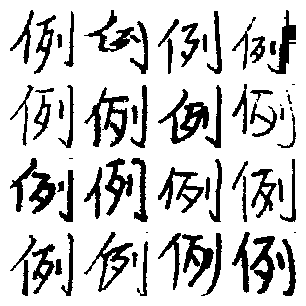 例例例例
例例例例
例例例例
例例例例